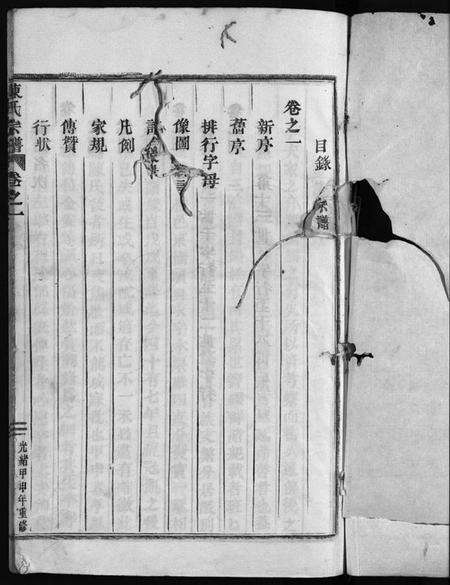 目錄
宗譜
卷之一
新序
舊序
排行字母
像圖
凡例
家規
傳贊
行狀
陳氏宗譜 卷之一
光緒甲申年重修